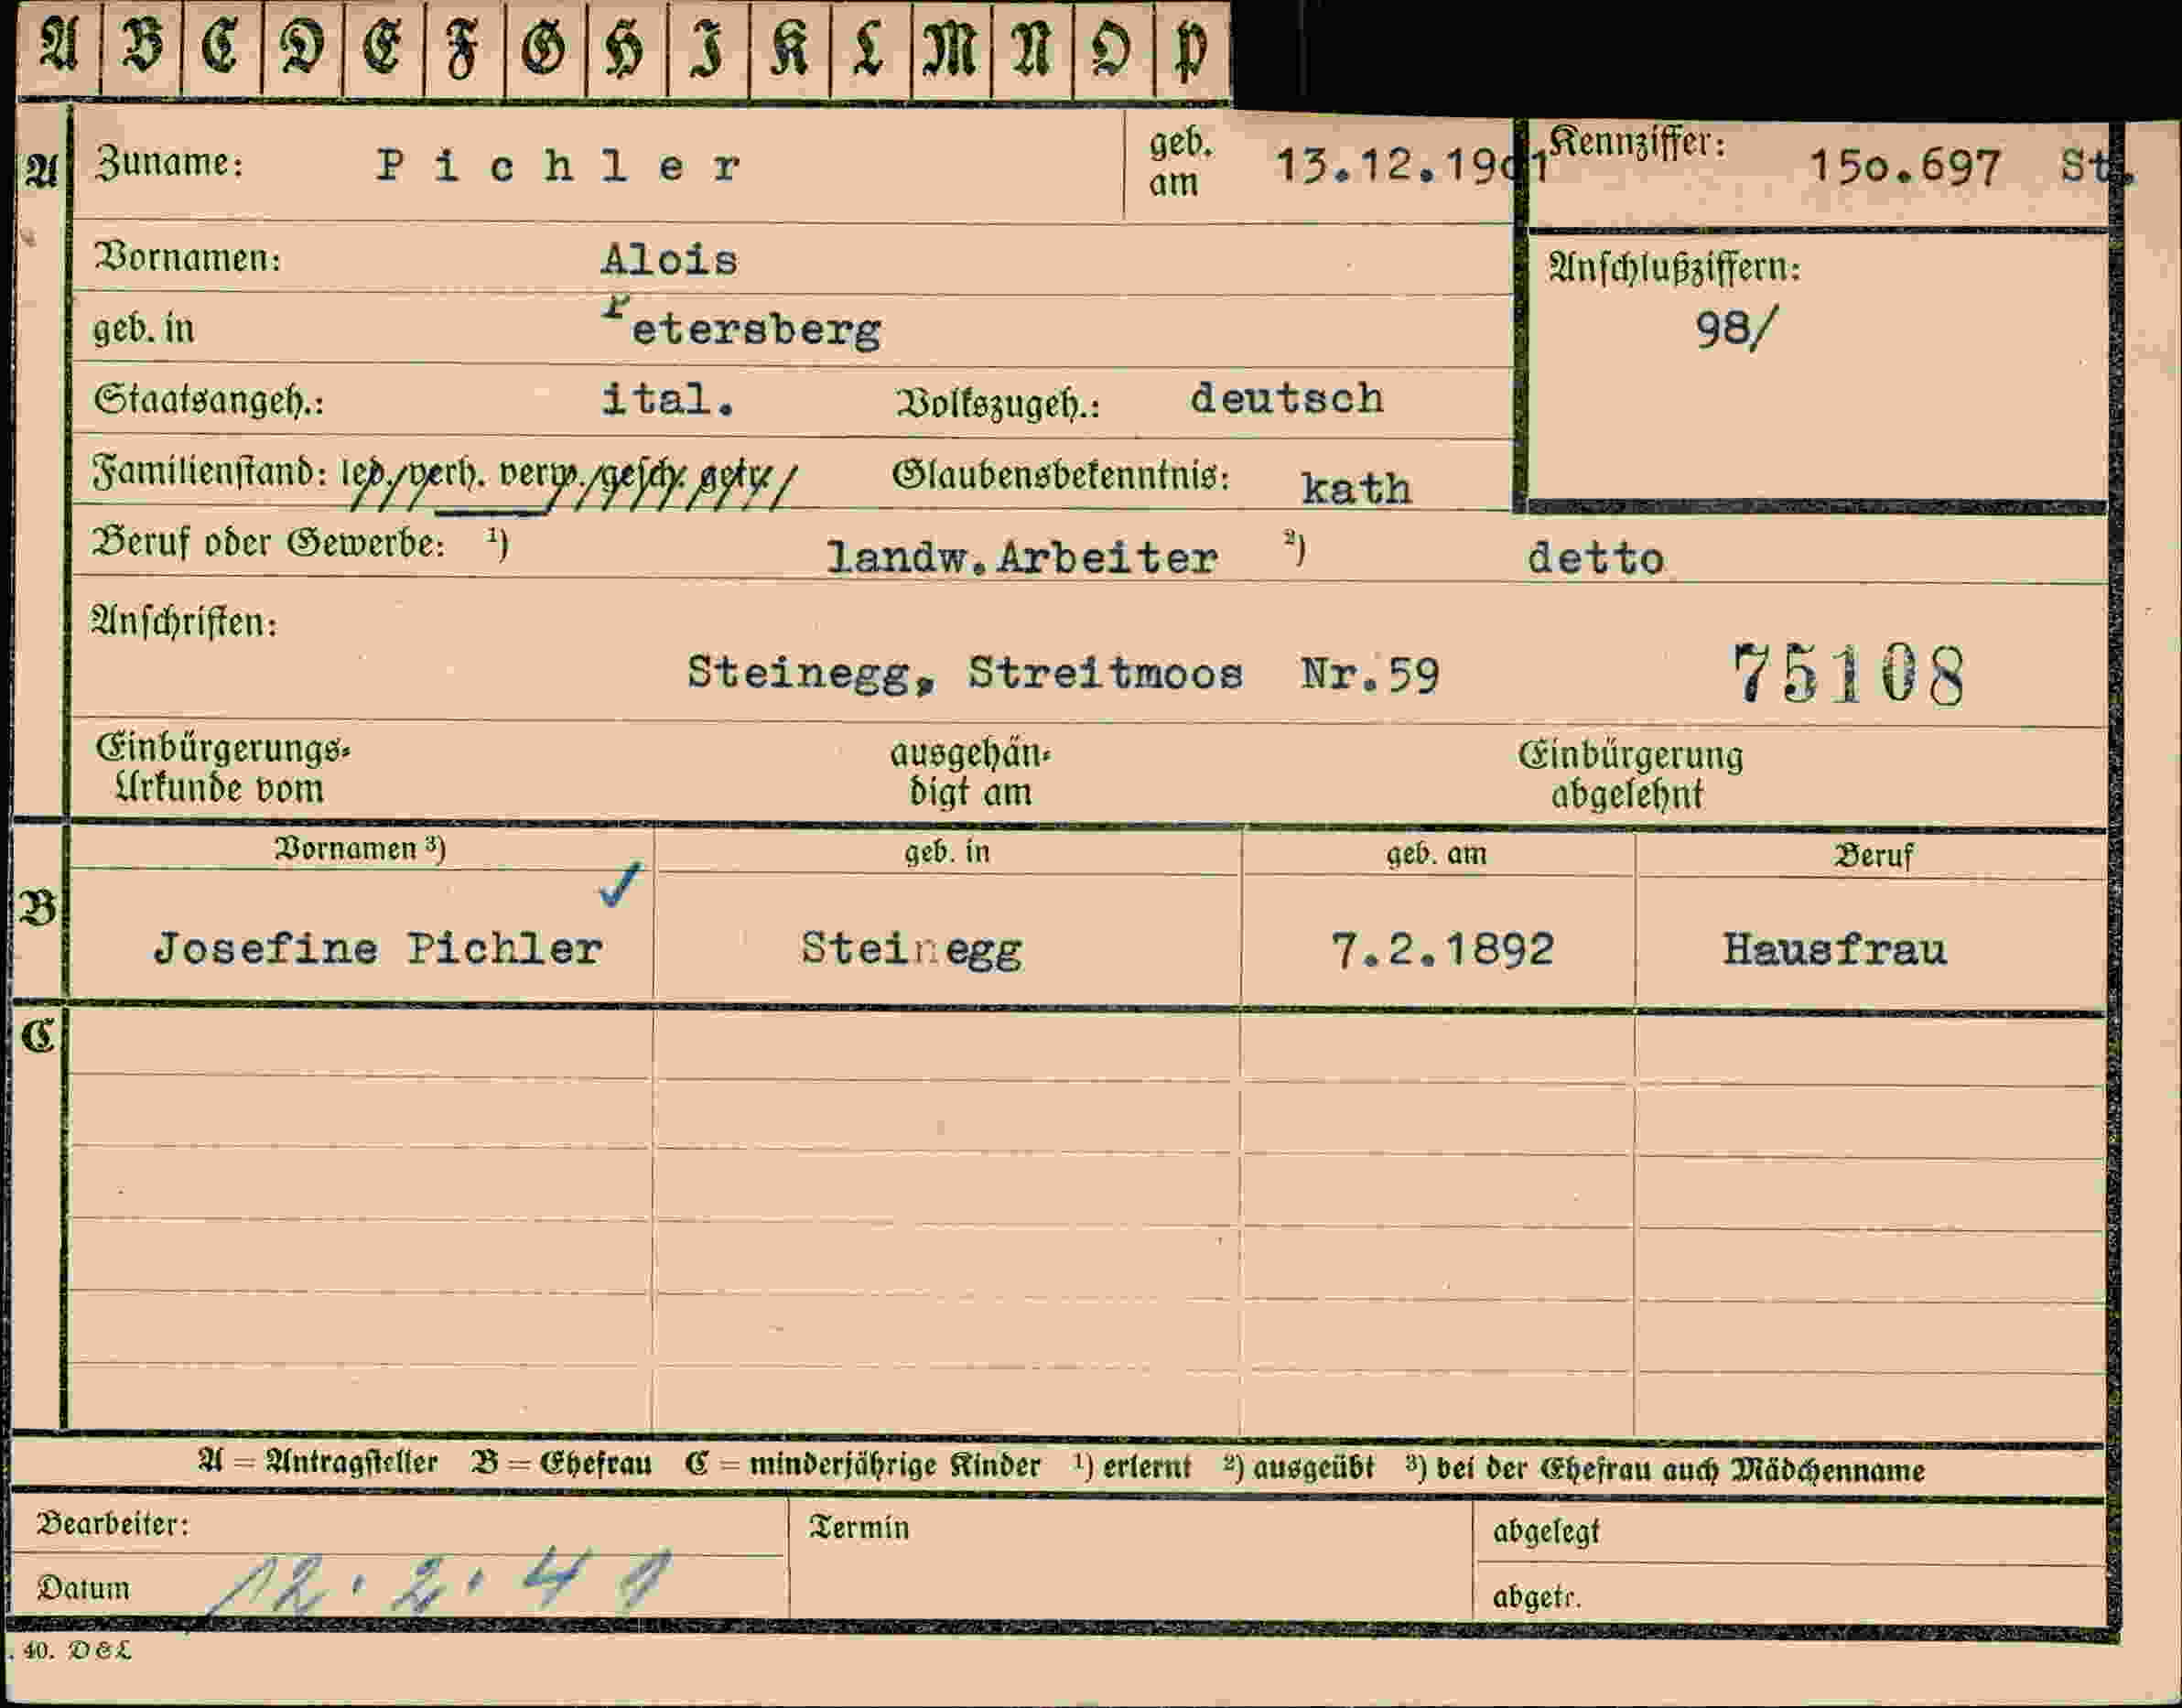 A B C D E F G H I K L M N O P
A Zuname: Pichler geb. am 13.12.1901 Kennziffer: 15o.697 St.
Vornamen: Alois Anschlußziffern:
geb. in Petersberg 98/
Staatsangeh.: ital. Volkszugeh.: deutsch
Familienstand: led./verh. verw./gesch. getr./ Glaubensbekenntnis: kath
Beruf oder Gewerbe: ¹) landw. Arbeiter ²) detto
Anschriften:
Steinegg, Streitmoos Nr. 59 75108
Einbürgerungs-Urkunde vom ausgehän-digt am Einbürgerung abgelehnt
Vornamen ³) geb. in geb. am Beruf
B ✓
Josefine Pichler Steinegg 7.2.1892 Hausfrau
C
A = Antragsteller B = Ehefrau C = minderjährige Kinder ¹) erlernt ²) ausgeübt ³) bei der Ehefrau auch Mädchenname
Bearbeiter: Termin abgelegt
Datum 12.2.4 abgetr.
. 40. D&L